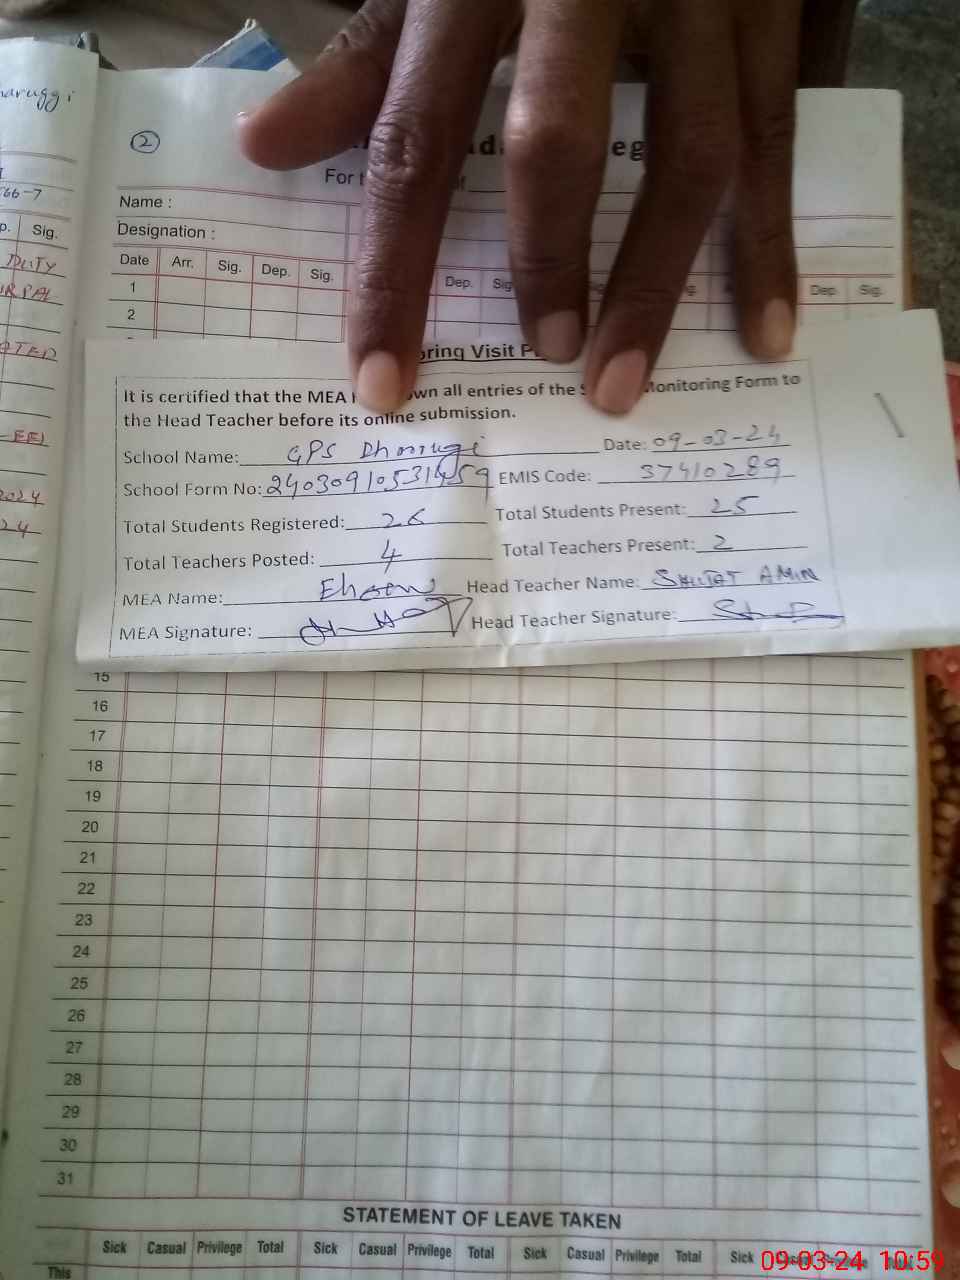 aruggi
②
For t
Name :
Designation :
Date Arr. Sig. Dep. Sig. Dep. Sig. Dep. Sig.
1
2
66-7
p. Sig.
DUTY
IRPAL
ATED
2024
24
oring Visit P
It is certified that the MEA own all entries of the S Monitoring Form to
the Head Teacher before its online submission.
School Name: GPS Dhorrugi Date: 09-03-24
School Form No: 24030910531459 EMIS Code: 37410289
Total Students Registered: 26 Total Students Present: 25
Total Teachers Posted: 4 Total Teachers Present: 2
MEA Name: Ehsan Head Teacher Name: SHUJAT AMIN
MEA Signature: Head Teacher Signature:
15
16
17
18
19
20
21
22
23
24
25
26
27
28
29
30
31
STATEMENT OF LEAVE TAKEN
Sick Casual Privilege Total Sick Casual Privilege Total Sick Casual Privilege Total Sick Casual Privilege Total
This
09-03-24 10:59